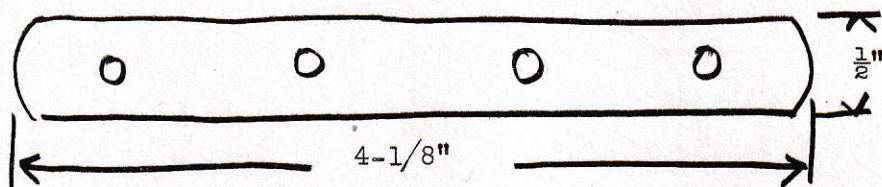 ½"
4-1/8"